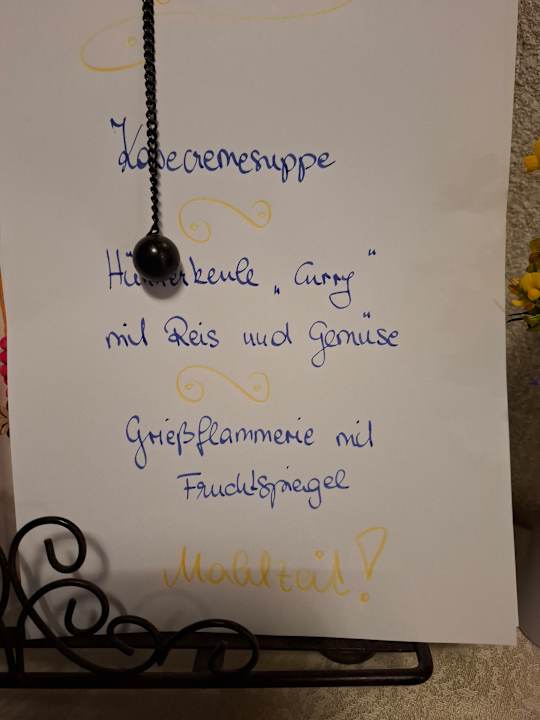 Käsecremesuppe
Hühnerkeule „Curry“
mit Reis und Gemüse
Grießflammerie mit
Fruchtspiegel
Mahlzeit!